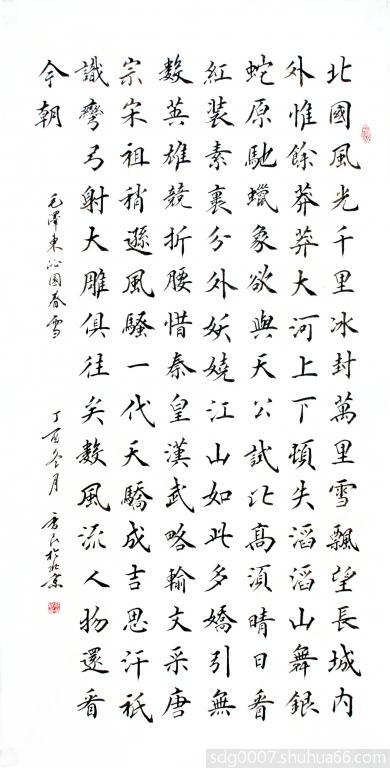 北國風光千里冰封萬里雪飄望長城内
外惟餘莽莽大河上下頓失滔滔山舞銀
蛇原馳蠟象欲與天公試比高須晴日看
紅裝素裹分外妖嬈江山如此多嬌引無
數英雄競折腰惜秦皇漢武略輸文采唐
宗宋祖稍遜風騷一代天驕成吉思汗祇
識彎弓射大雕俱往矣數風流人物還看
今朝
毛澤東沁園春雪 丁酉冬月 於北京
sdg0007.shuhua66.com